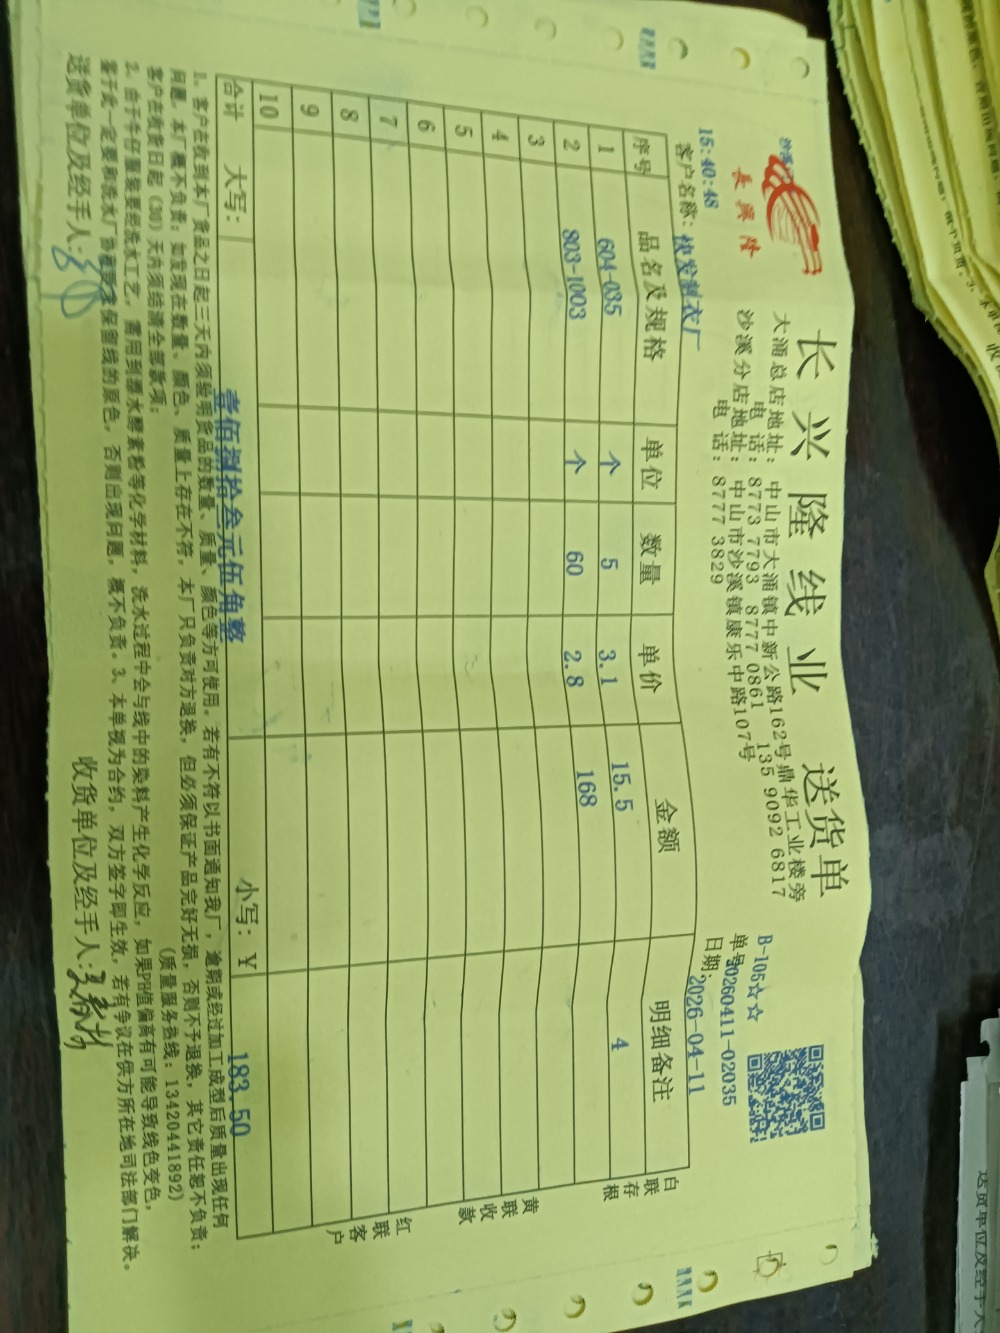 长兴隆线业 送货单
長興隆
大涌总店地址：中山市大涌镇中新公路162号鼎华工业楼旁
电 话：8773 7793 8777 0861 135 9092 6817
沙溪分店地址：中山市沙溪镇康乐中路107号
电 话：8777 3829
B-105☆☆
单号 20260411-02035
日期：2026-04-11
15:40:48
客户名称：快发制衣厂
序号 品名及规格 单位 数量 单价 金额 明细备注
1 604-035 个 5 3.1 15.5 4
2 803-1003 个 60 2.8 168
3
4
5
6
7
8
9
10
合计 大写：壹佰捌拾叁元伍角整 小写：￥ 183.50
白联存根
黄联收款
红联客户
1、客户在收到本厂货品之日起三天内须验明货品的数量、质量、颜色等方可使用。若有不符以书面通知我厂，逾期或经过加工成型后质量出现任何
问题，本厂概不负责；如发现在数量、颜色、质量上存在不符，本厂只负责对方退换，但必须保证产品完好无损，否则不予退换，其它责任恕不负责；
客户在收货日起（30）天内须结清全部款项； （质量服务热线：13420441892）
2、由于牛仔服装要经洗水工艺，需用到漂水酵素粉等化学材料，洗水过程中会与线中的染料产生化学反应，如果PH值偏高有可能导致线色变色，
鉴于此一定要和洗水厂协商要求保留线的原色，否则出现问题，概不负责。3、本单视为合约，双方签字即生效，若有争议在供方所在地司法部门解决。
送货单位及经手人： 收货单位及经手人：
送货单位及经手人